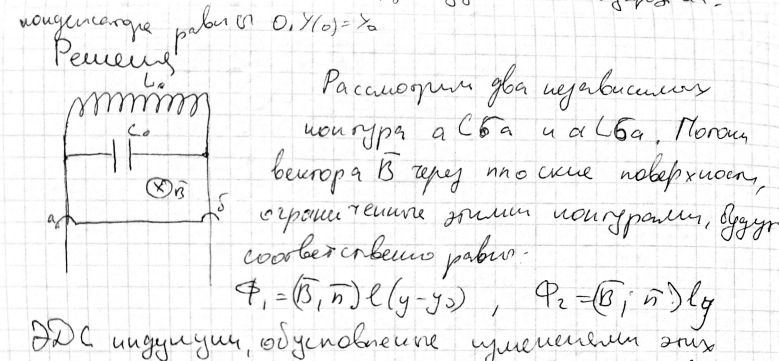 конденсатора равны 0, y(0)=y₀
Решение
L₀
Рассмотрим два независимых
C₀
контура аCба и аLба. Потоки
вектора B̄ через плоские поверхности,
⊗ B̄
а б
ограниченные этими контурами, будут
соответственно равны:
Φ₁=(B̄, n̄) l (y-y₀) , Φ₂=(B̄; n̄) l y
ЭДС индукции, обусловленные изменениями этих